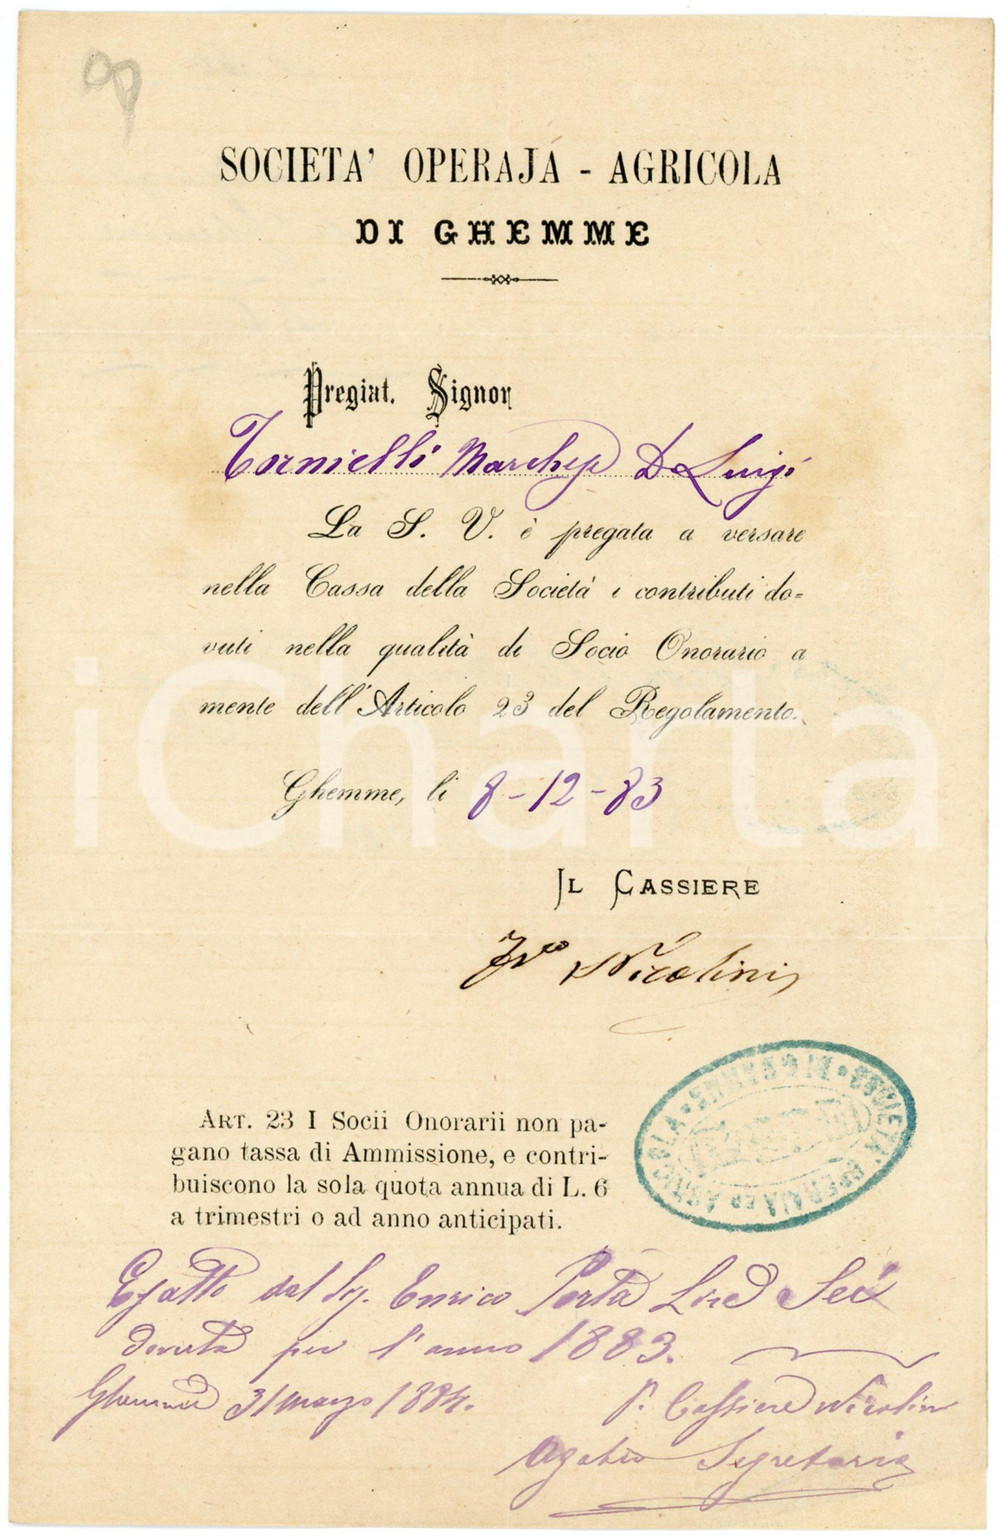 SOCIETA' OPERAJA - AGRICOLA
DI GHEMME
Pregiat. Signor
Tornielli Marchese D. Luigi
La S. V. è pregata a versare
nella Cassa della Società i contributi do=
vuti nella qualità di Socio Onorario a
mente dell'Articolo 23 del Regolamento.
Ghemme, li 8-12-83
IL CASSIERE
Nicolini
ART. 23 I Socii Onorarii non pa-
gano tassa di Ammissione, e contri-
buiscono la sola quota annua di L. 6
a trimestri o ad anno anticipati.
SOCIETÀ OPERAIA ED AGRICOLA DI GHEMME
Esatto dal Sig. Enrico Porta Lire Sei
dovuta per l'anno 1883.
Ghemme 31 marzo 1884.
P. Cassiere Nicolini
Segretario
iCharta